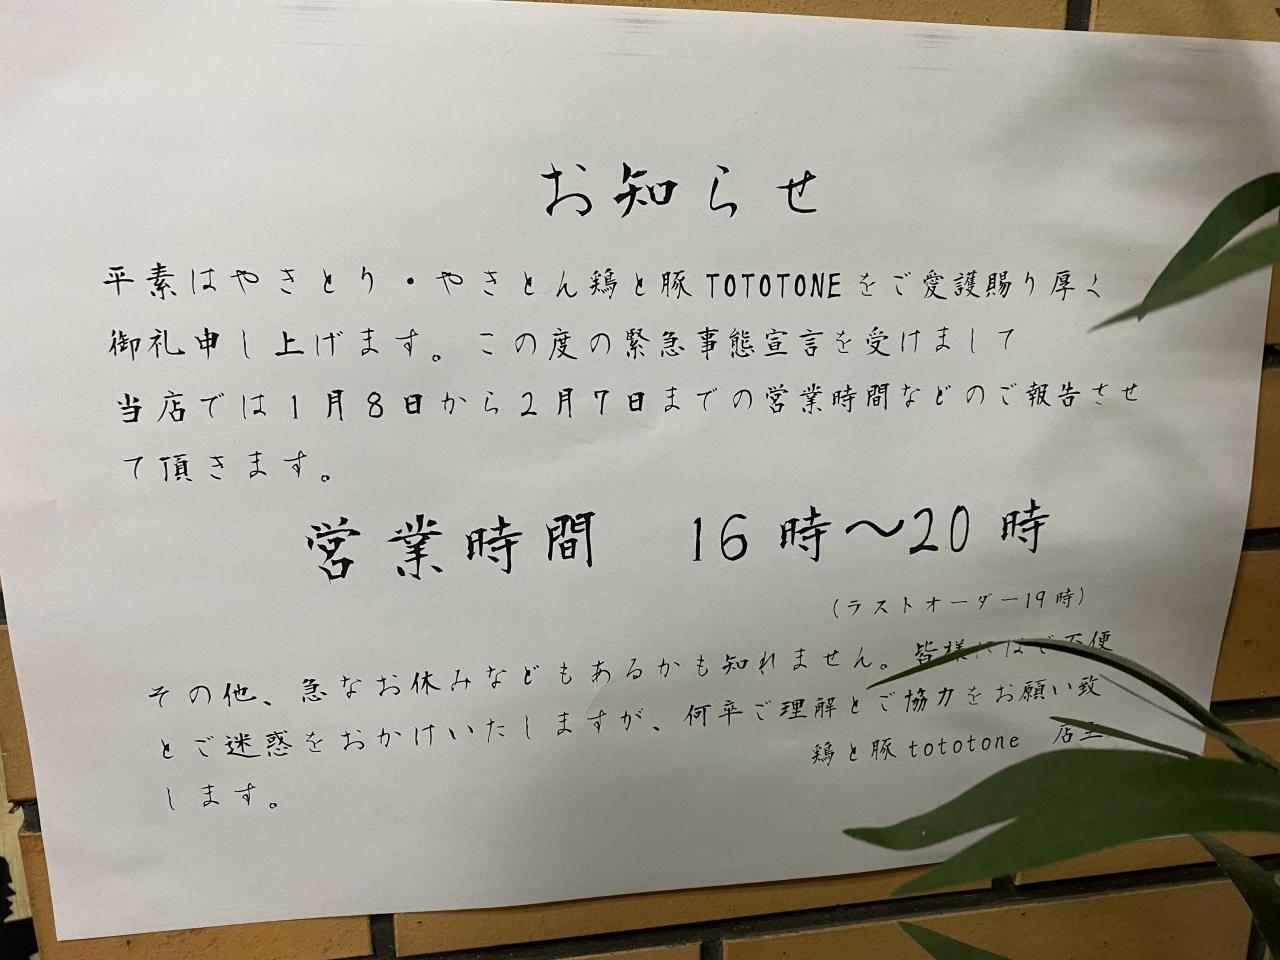 お知らせ
平素はやきとり・やきとん鶏と豚TOTOTONEをご愛護賜り厚く
御礼申し上げます。この度の緊急事態宣言を受けまして
当店では1月8日から2月7日までの営業時間などのご報告させ
て頂きます。
営業時間　16時～20時
(ラストオーダー19時)
その他、急なお休みなどもあるかも知れません。皆様にはご不便
とご迷惑をおかけいたしますが、何卒ご理解とご協力をお願い致
します。
鶏と豚tototone　店主